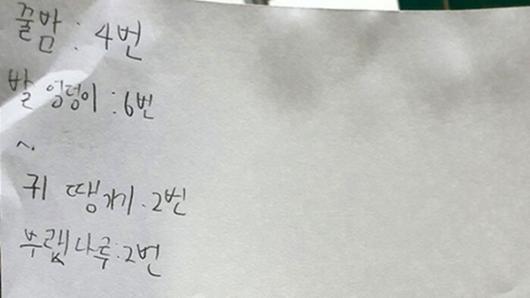 꿀밤 : 4번
발 엉덩이 : 6번
~
귀 땡기기. 2번
뿌렙나루 : 2번